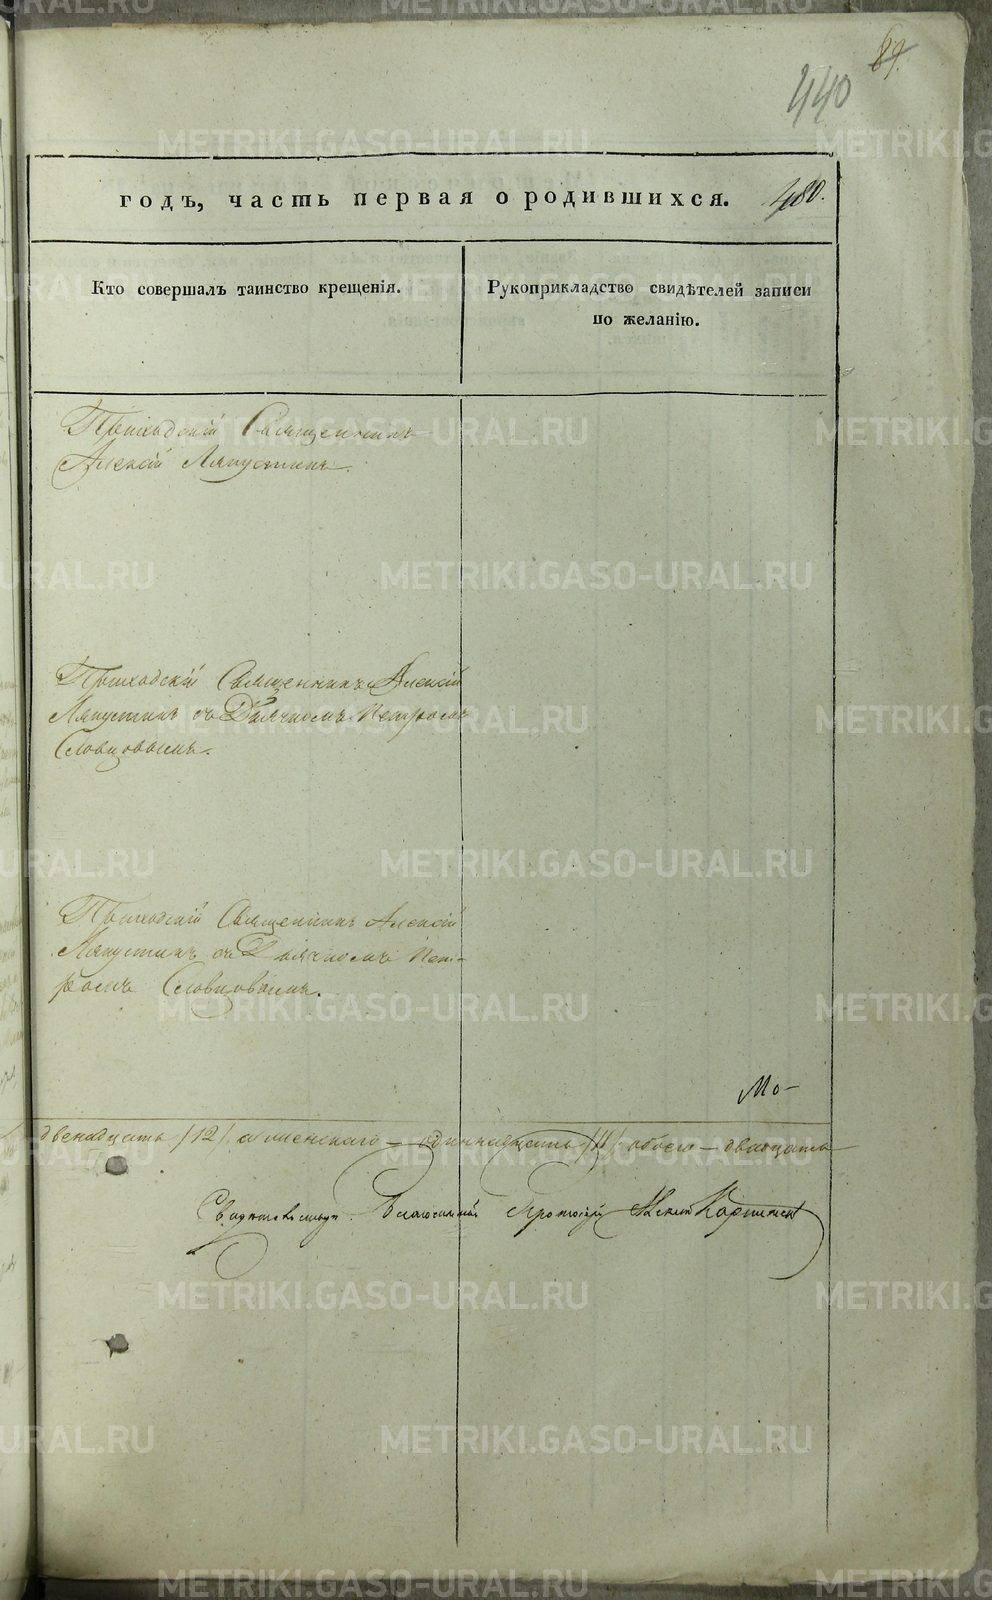 89.
440
годъ, часть первая о родившихся. 480.
Кто совершалъ таинство крещенія.
Рукоприкладство свидѣтелей записи
по желанію.
Приходскій Священникъ
Алексій Ляпустинъ.
Приходскій Священникъ Алексій
Ляпустинъ съ Дьячкомъ Петромъ
Словцовымъ.
Приходскій Священникъ Алексій
Ляпустинъ съ Дьячкомъ Пет-
ромъ Словцовымъ.
Мо-
двенадцать /12/ а женскаго – одиннадцать /11/ обоего – двадцать
Протоіерей
METRIKI.GASO-URAL.RU